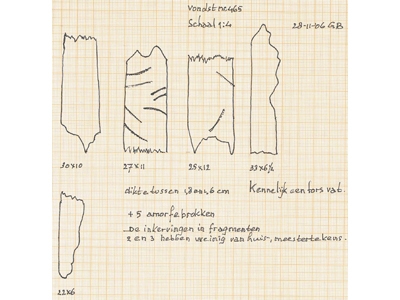 vondst nr 465
Schaal 1:4
28-11-06 GB
30x10
27x11
25x12
33x6½
dikte tussen 1,8 en 1,6 cm
Kennelijk een tors vat.
+ 5 amorfe brokken
De inkervingen in fragmenten
2 en 3 hebben weinig van huis, meestertekens.
22x6